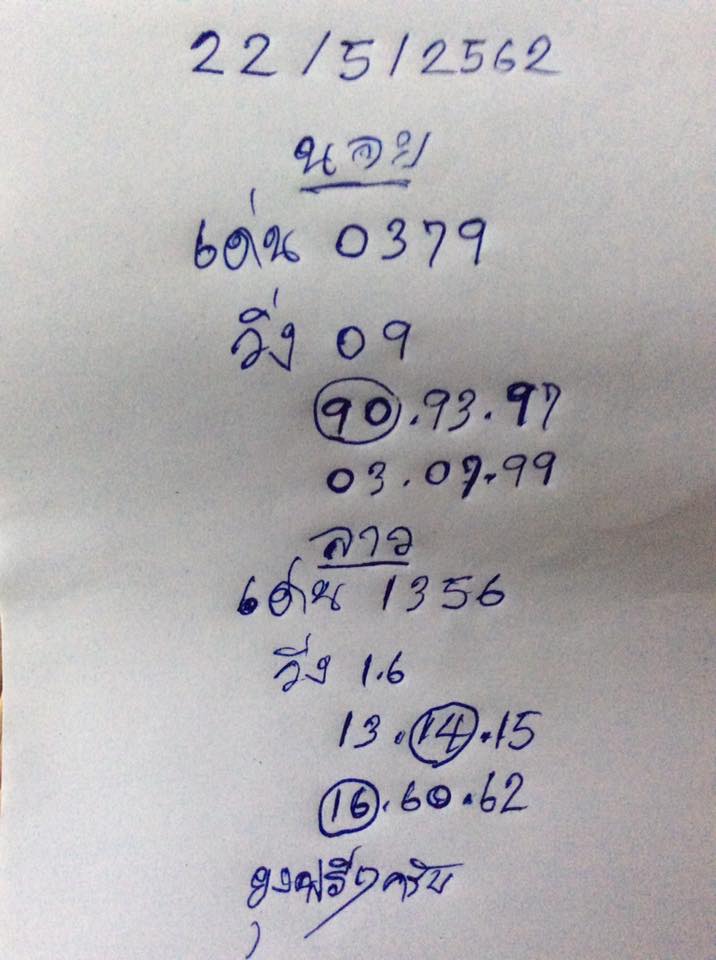 22/5/2562
นอย
เด่น 0379
วิ่ง 09
90.93.97
03.07.99
ลาว
เด่น 1356
วิ่ง 1.6
13.14.15
16.60.62
ฟรีๆครับ